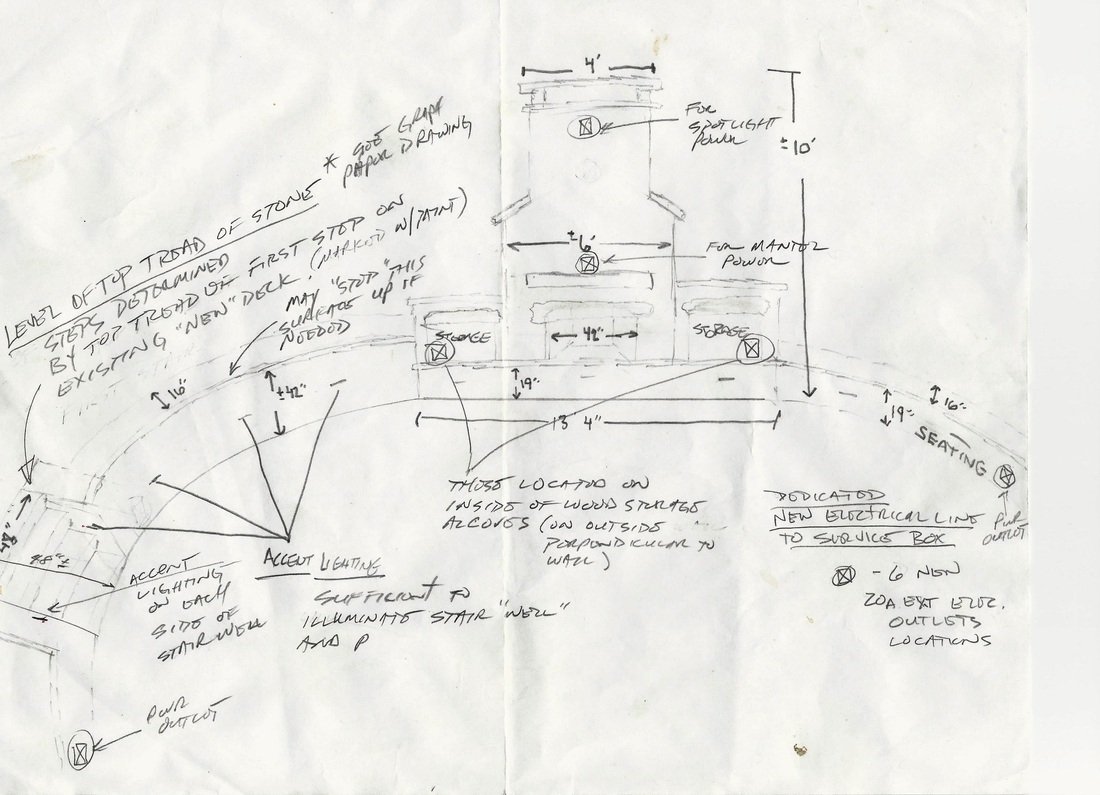 4'
FOR
SPOTLIGHT
POWER
±10'
* SEE GRAPH
PAPER DRAWING
LEVEL OF TOP TREAD OF STONE
STEPS DETERMINED
BY TOP TREAD OF FIRST STEP ON
EXISTING "NEW" DECK! (MARKED W/PAINT)
MAY "STEP" THIS
SURFACE UP IF
NEEDED
±6'
FOR MANTEL
POWER
STORAGE
42"
STORAGE
16"
±42"
19"
13' 4"
19"
16"
SEATING
PWR
OUTLET
THESE LOCATED ON
INSIDE OF WOOD STORAGE
ALCOVES (ON OUTSIDE
PERPENDICULAR TO
WALL)
DEDICATED
NEW ELECTRICAL LINE
TO SERVICE BOX
- 6 NEW
20A EXT ELEC.
OUTLETS
LOCATIONS
48"
48"±
ACCENT
LIGHTING
ON EACH
SIDE OF
STAIRWELL
ACCENT LIGHTING
SUFFICIENT TO
ILLUMINATE STAIR "WELL"
AND P
PWR
OUTLET